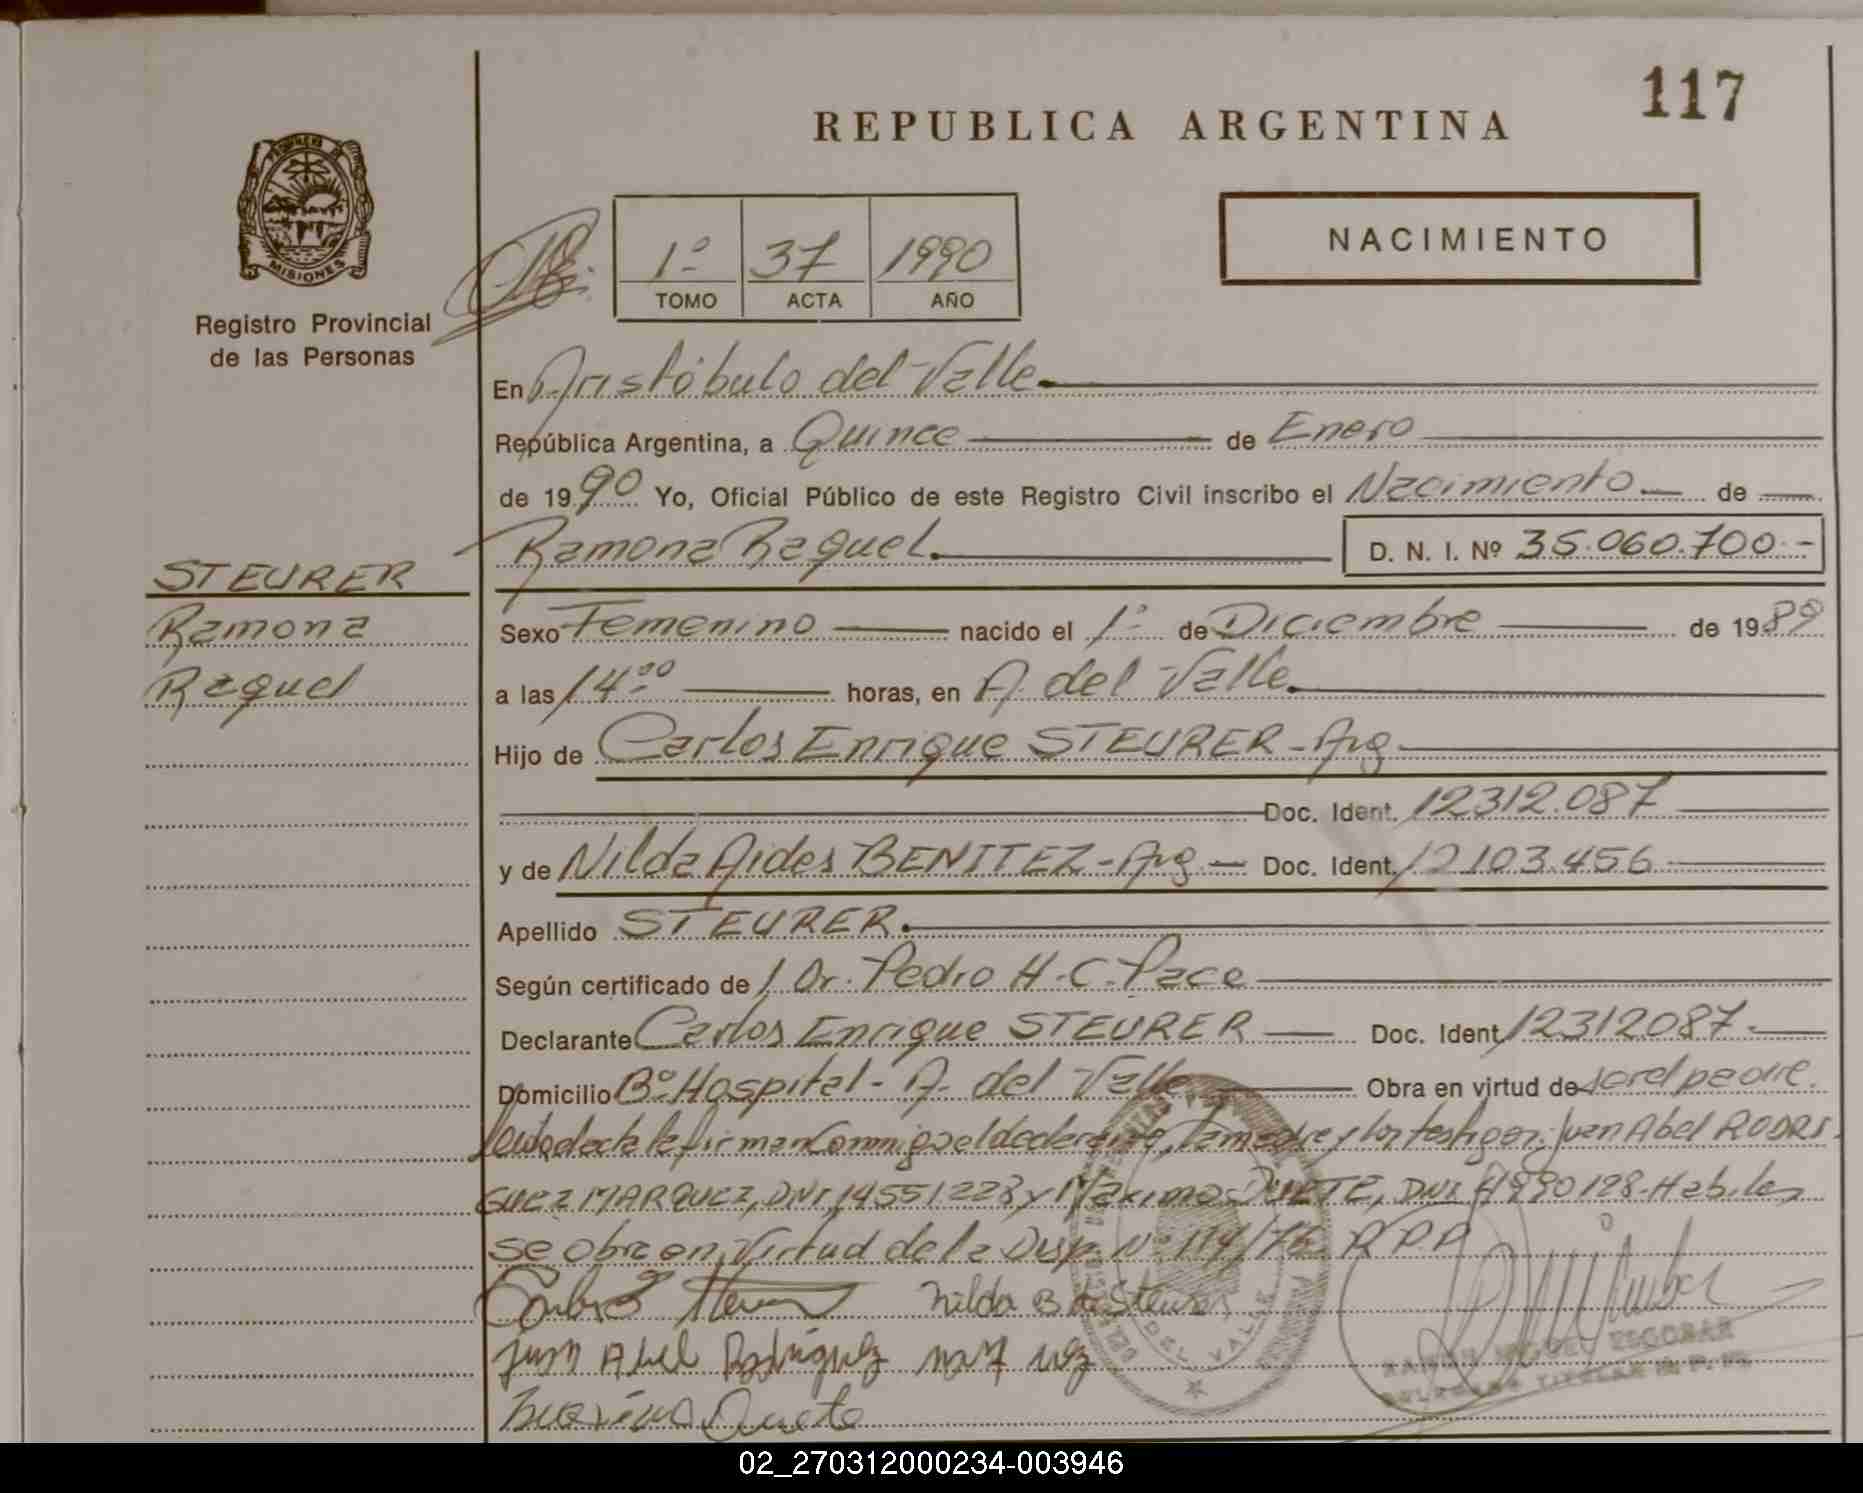 117
REPUBLICA ARGENTINA
PROVINCIA DE
MISIONES
Registro Provincial
de las Personas
1º 37 1990
TOMO ACTA AÑO
NACIMIENTO
En Aristóbulo del Valle.
República Argentina, a Quince de Enero
de 1990 Yo, Oficial Público de este Registro Civil inscribo el Nacimiento de
Ramona Raquel. D. N. I. Nº 35.060.700.-
STEURER
Ramona
Raquel
Sexo Femenino nacido el 1º de Diciembre de 1989
a las 14:00 horas, en A. del Valle.
Hijo de Carlos Enrique STEURER - Arg
Doc. Ident. 12312.087
y de Nilda Aides BENITEZ - Arg - Doc. Ident. 12.103.456
Apellido STEURER.
Según certificado de 1 Dr. Pedro H. C. Pace
Declarante Carlos Enrique STEURER Doc. Ident 12312087.
Domicilio Bº Hospital - A. del Valle Obra en virtud de ser el padre.
Leida el acta la firman conmigo el declarante, la madre y los testigos: Juan Abel RODRI-
GUEZ MARQUEZ, DNI, 14551.228 y Máximo DUETE, DNI Habiles
se obra en virtud de la Disp. Nº 114/76 R.P.P
Nilda B de Steurer
Juan Abel Rodriguez
DEL VALLE
RAMON MIGUEL ESCOBAR
DELEGADO TITULAR
02_270312000234-003946